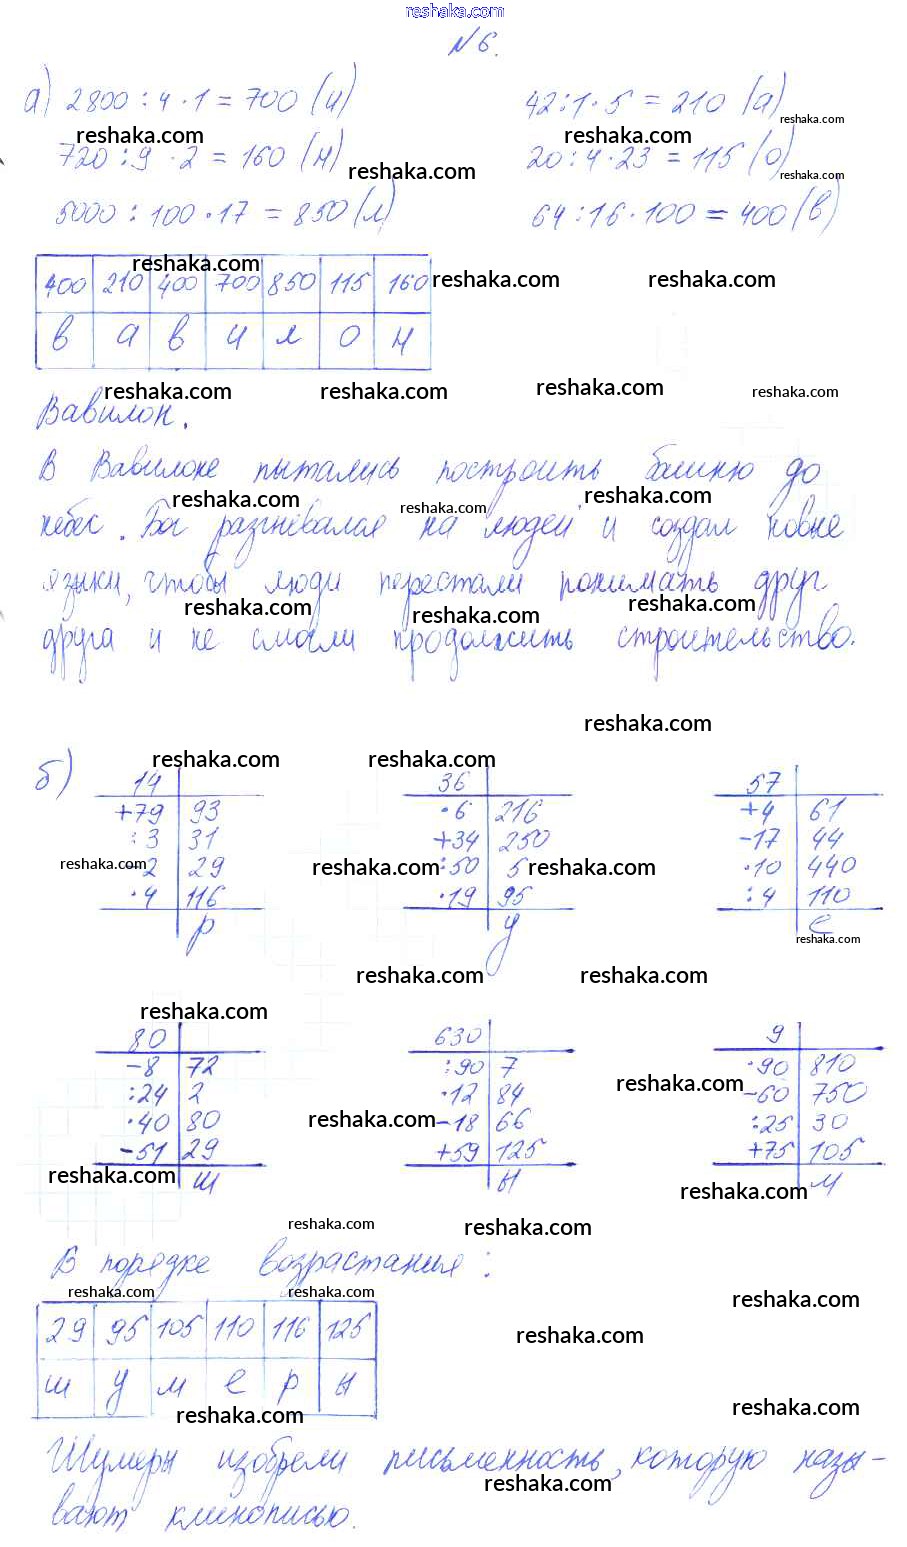 reshaka.com
№6.
а) 2800 : 4 · 1 = 700 (и) 42 : 1 · 5 = 210 (а)
reshaka.com reshaka.com reshaka.com
720 : 9 · 2 = 160 (н) 20 : 4 · 23 = 115 (о)
reshaka.com reshaka.com
5000 : 100 · 17 = 850 (л) 64 : 16 · 100 = 400 (в)
reshaka.com
400 210 400 700 850 115 160 reshaka.com reshaka.com
в а в и л о н
reshaka.com reshaka.com reshaka.com reshaka.com
Вавилон.
В Вавилоне пытались построить башню до
reshaka.com reshaka.com reshaka.com
небес. Бог разгневался на людей и создал новые
языки, чтобы люди перестали понимать друг
reshaka.com reshaka.com reshaka.com
друга и не смогли продолжить строительство.
reshaka.com
б) reshaka.com reshaka.com
14 36 57
+79 93 ·6 216 +4 61
:3 31 +34 250 -17 44
reshaka.com -2 29 reshaka.com :50 5 reshaka.com ·10 440
·4 116 ·19 95 :4 110
р у е
reshaka.com
reshaka.com reshaka.com
reshaka.com
80 630 9
-8 72 :90 7 ·90 810
reshaka.com
:24 2 ·12 84 -60 750
·40 80 reshaka.com -18 66 :25 30
-51 29 +59 125 +75 105
reshaka.com ш ы м
reshaka.com
reshaka.com reshaka.com
В порядке возрастания:
reshaka.com reshaka.com reshaka.com
29 95 105 110 116 125 reshaka.com
ш у м е р ы
reshaka.com reshaka.com
Шумеры изобрели письменность, которую назы-
reshaka.com
вают клинописью.